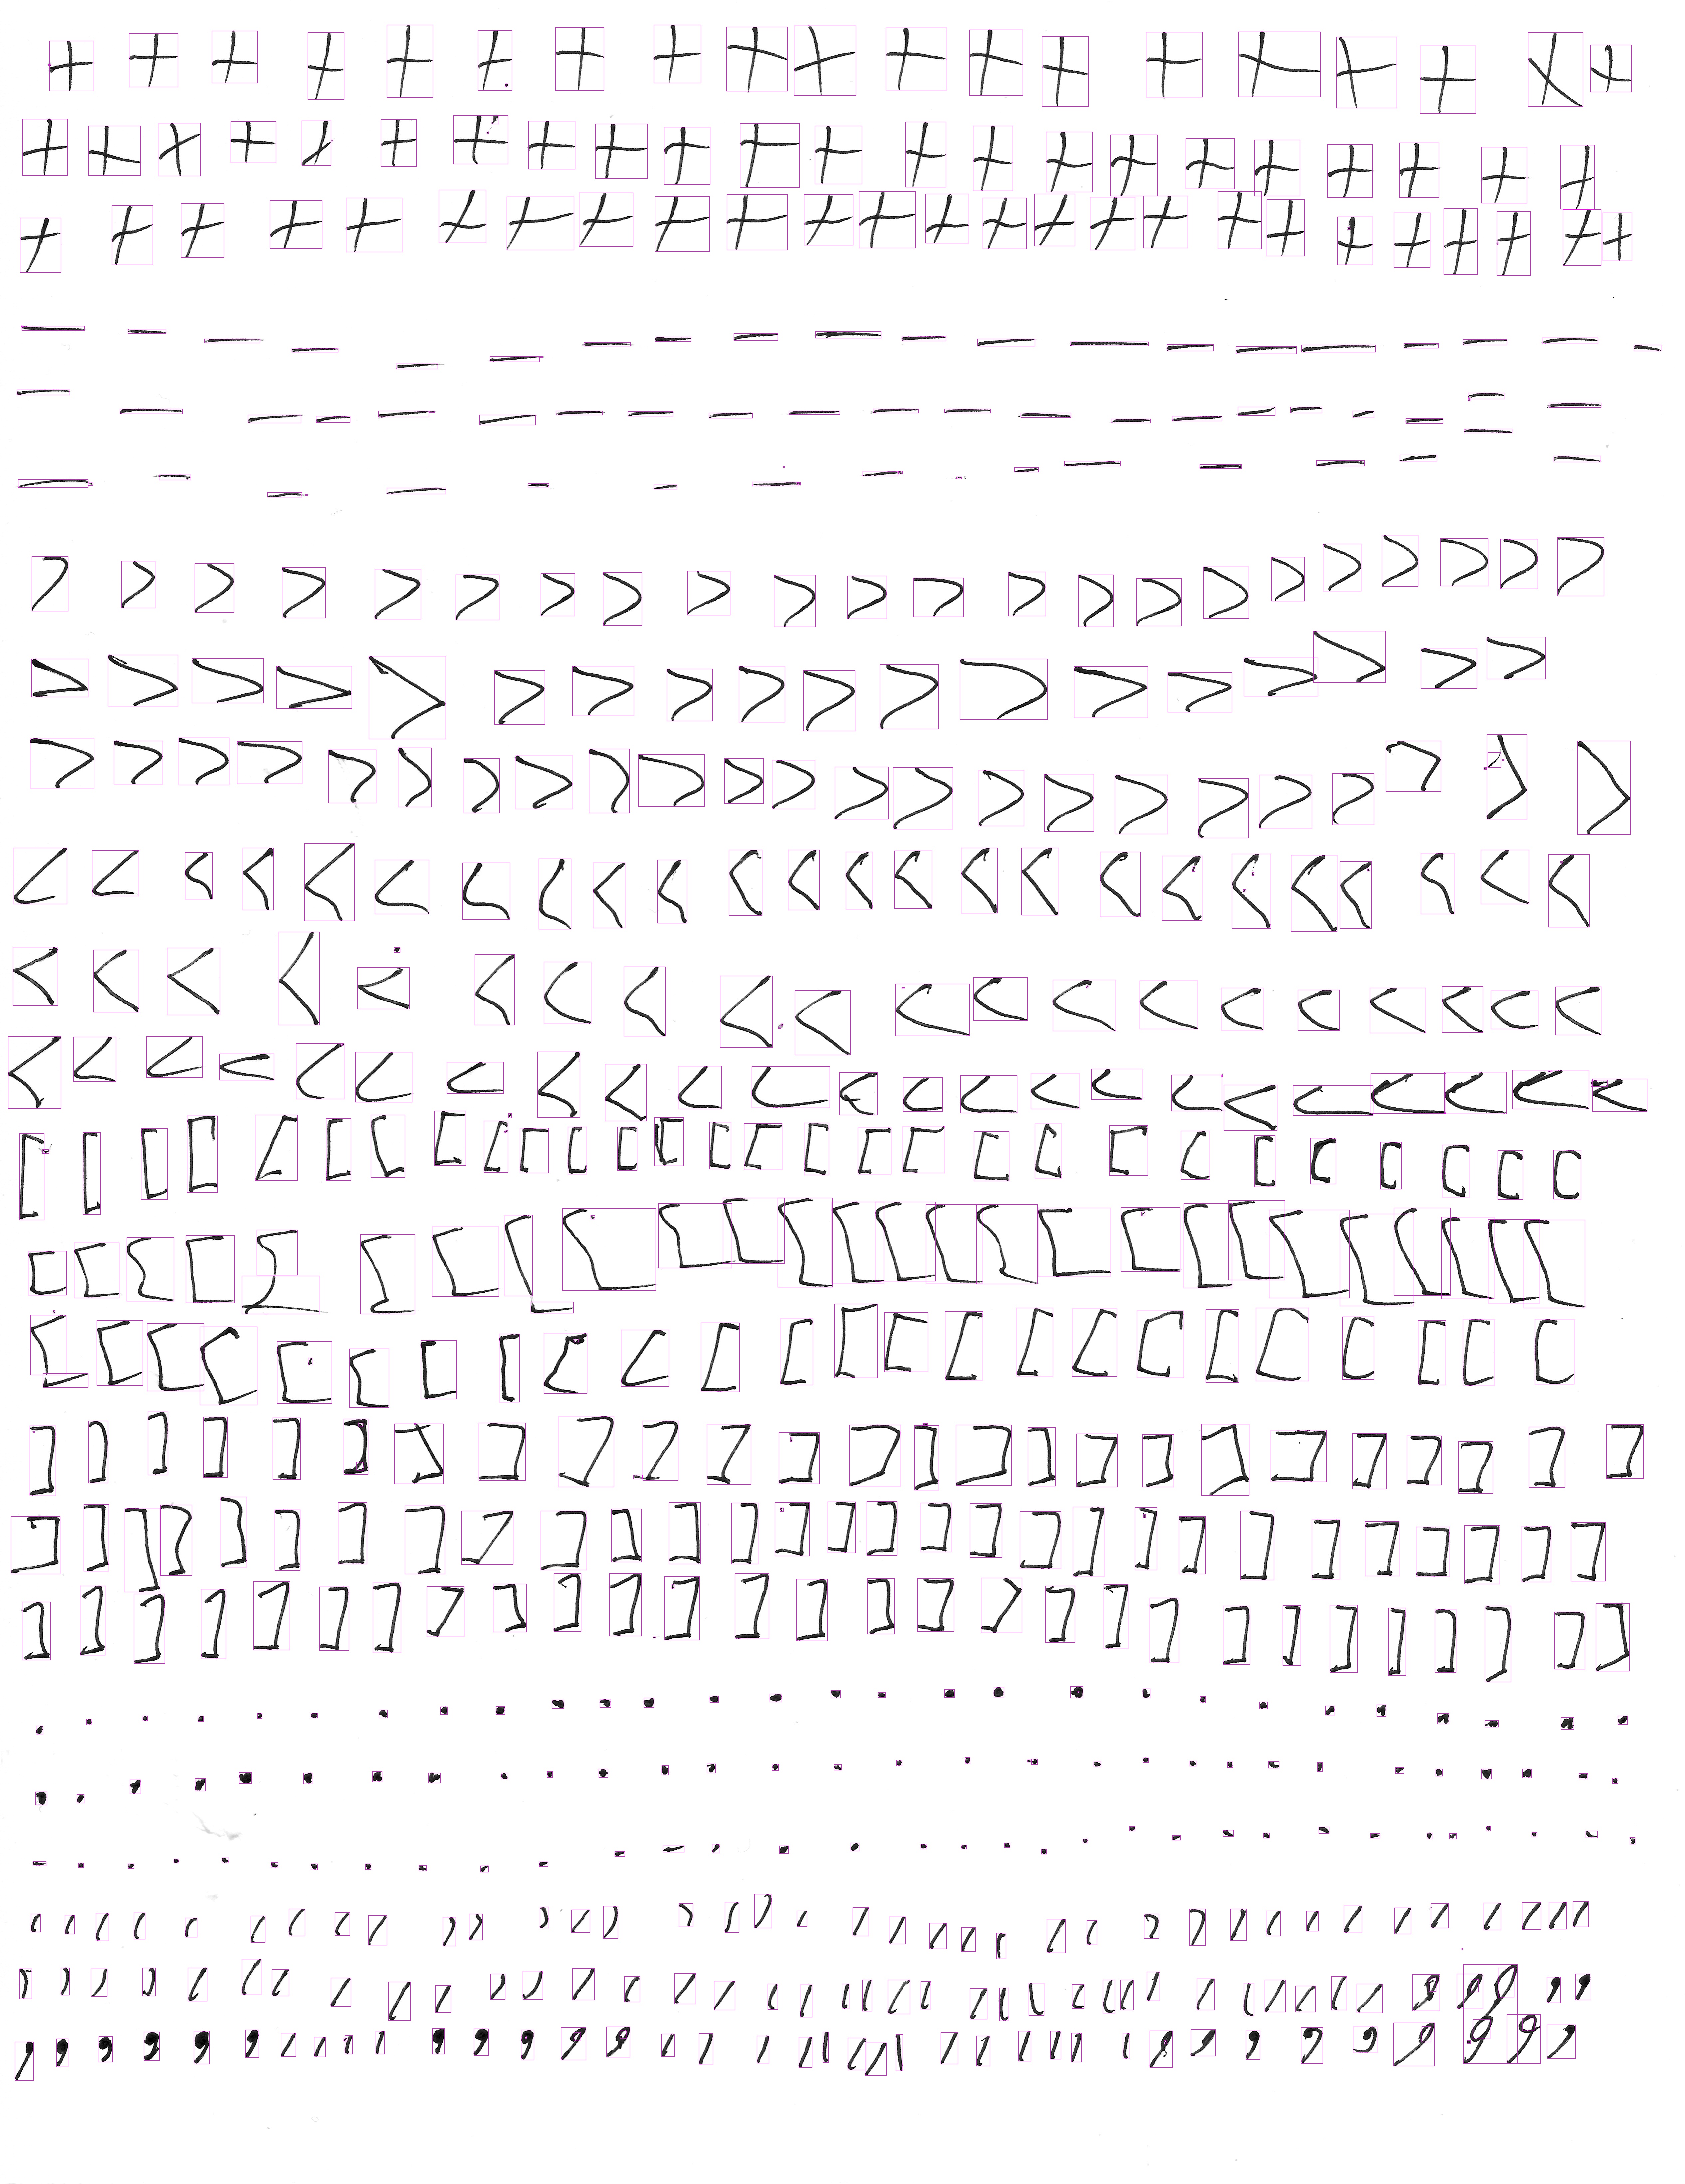 + + + + + + + + + + + + + + + + + + +
+ + + + + + + + + + + + + + + + + + + + + +
+ + + + + + + + + + + + + + + + + + + + + + + + +
- - - - - - - - - - - - - - - - - - - -
- - - - - - - - - - - - - - - - - - - - -
- - - - - - - - - - - - - -
> > > > > > > > > > > > > > > > > > > > > >
> > > > > > > > > > > > > > > > > > >
> > > > > > > > > > > > > > > > > > > > > > >
< < < < < < < < < < < < < < < < < < < < < < < <
< < < < < < < < < < < < < < < < < < < <
< < < < < < < < < < < < < < < < < < < < < < <
[ [ [ [ [ [ [ [ [ [ [ [ [ [ [ [ [ [ [ [ [ [ [ [ [ [ [ [
[ [ [ [ [ [ [ [ [ [ [ [ [ [ [ [ [ [ [ [ [ [ [ [ [ [
[ [ [ [ [ [ [ [ [ [ [ [ [ [ [ [ [ [ [ [ [ [ [ [
] ] ] ] ] ] ] ] ] ] ] ] ] ] ] ] ] ] ] ] ] ] ] ] ]
] ] ] ] ] ] ] ] ] ] ] ] ] ] ] ] ] ] ] ] ] ] ] ] ] ] ] ] ]
] ] ] ] ] ] ] ] ] ] ] ] ] ] ] ] ] ] ] ] ] ] ] ] ] ] ] ]
. . . . . . . . . . . . . . . . . . . . . . . . . . .
. . . . . . . . . . . . . . . . . . . . . . . . . . . . .
. . . . . . . . . . . . . . . . . . . . . . . . . . . . . . .
, , , , , , , , , , , , , , , , , , , , , , , , , , , , , , , , , , , , ,
, , , , , , , , , , , , , , , , , , , , , , , , , , , , , , , , , , , , , , , , ,
, , , , , , , , , , , , , , , , , , , , , , , , , , , , , , , , , , , , , , ,